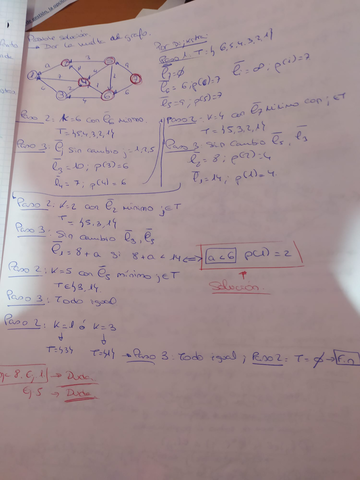 Posible solución.
→ Dar la vuelta al grafo.
Por Dijkstra
Paso 1: T = {6,5,4,3,2,1}
l̄₇ = 0
l̄ᵢ = ∞, p(i) = 7
l̄₆ = 6, p(6) = 7
Paso 2: K=6 con l̄₆ mínimo
T = {5,4,3,2,1}
Paso 3: Sin cambio j = 1,2,5
l̄₃ = 10; p(3) = 6
l̄₄ = 7; p(4) = 6
Paso 2: K=4 con l̄₄ mínimo con j∈T
T = {5,3,2,1}
Paso 3: Sin cambio l̄₅, l̄₃
l̄₂ = 8; p(2) = 4
l̄₁ = 14; p(1) = 4
Paso 2: K=2 con l̄₂ mínimo j∈T
T = {5,3,1}
Paso 3:
Sin cambio l̄₃, l̄₅
l̄₁ = 8+a si 8+a < 14 ⇔ a<6 p(1) = 2
Solución.
Paso 2: K=5 con l̄₅ mínimo j∈T
T = {3,1}
Paso 3: Todo igual
Paso 2: K=1 ó K=3
T={3} T={1} → Paso 3: Todo igual; Paso 2: T = ∅ → Fin
→ Duda.
→ Duda.